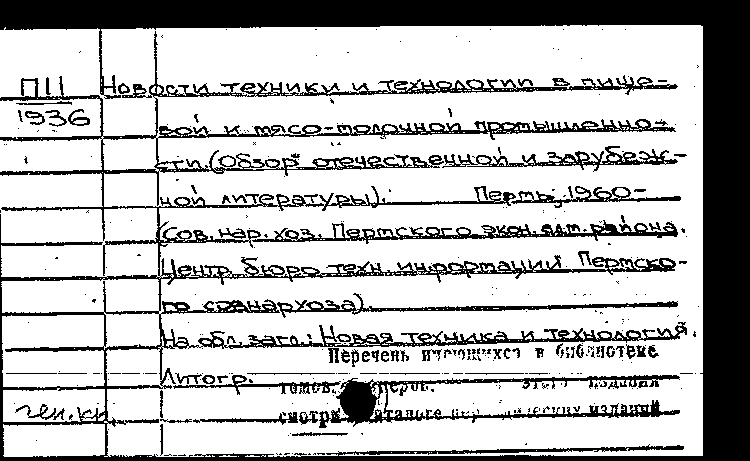 П11 Новости техники и технологии в пище-
1936 вой и мясо-молочной промышленно-
сти.(Обзор отечественной и зарубеж-
ной литературы). Пермь, 1960-
(Сов. нар. хоз. Пермского экон. адм. района.
Центр. бюро техн. информации Пермско-
го совнархоза).
На обл. загл.: Новая техника и технология.
Перечень имеющихся в библиотеке
Литогр.
томов, номеров этого издания
ген. кн. смотри в каталоге периодических изданий